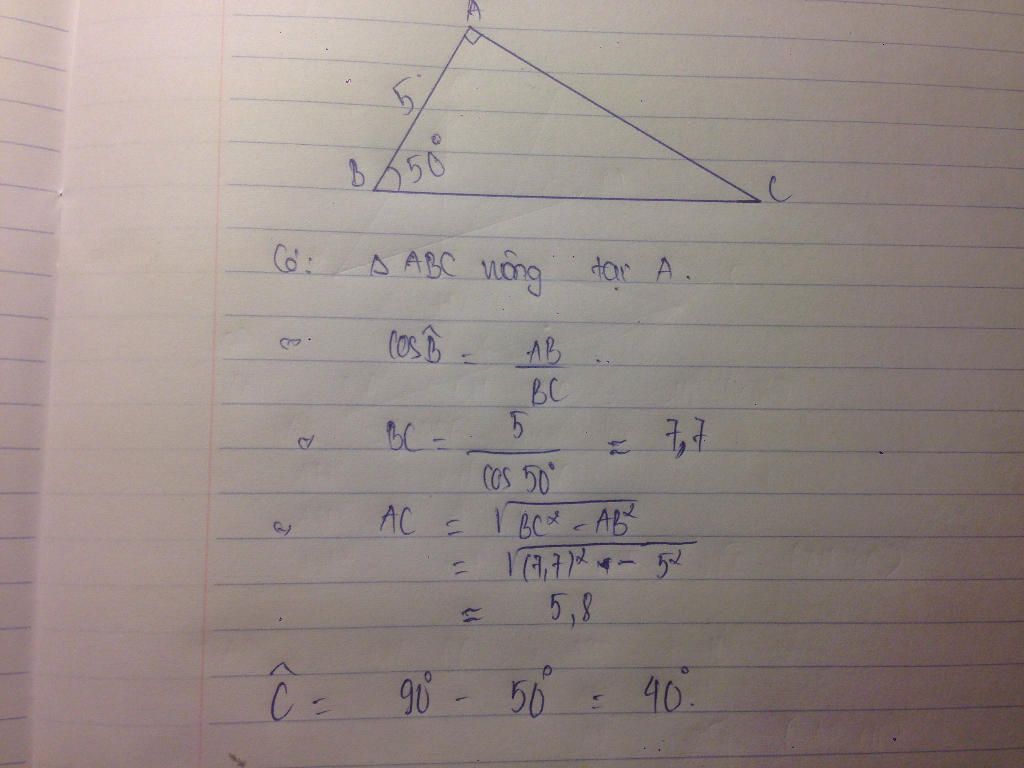 A
5
B 50° C
Có: Δ ABC vuông tại A.
⇒ cosB̂ = AB/BC
⇒ BC = 5/cos 50° ≈ 7,7
⇒ AC = √(BC² - AB²)
= √((7,7)² - 5²)
≈ 5,8
Ĉ = 90° - 50° = 40°.